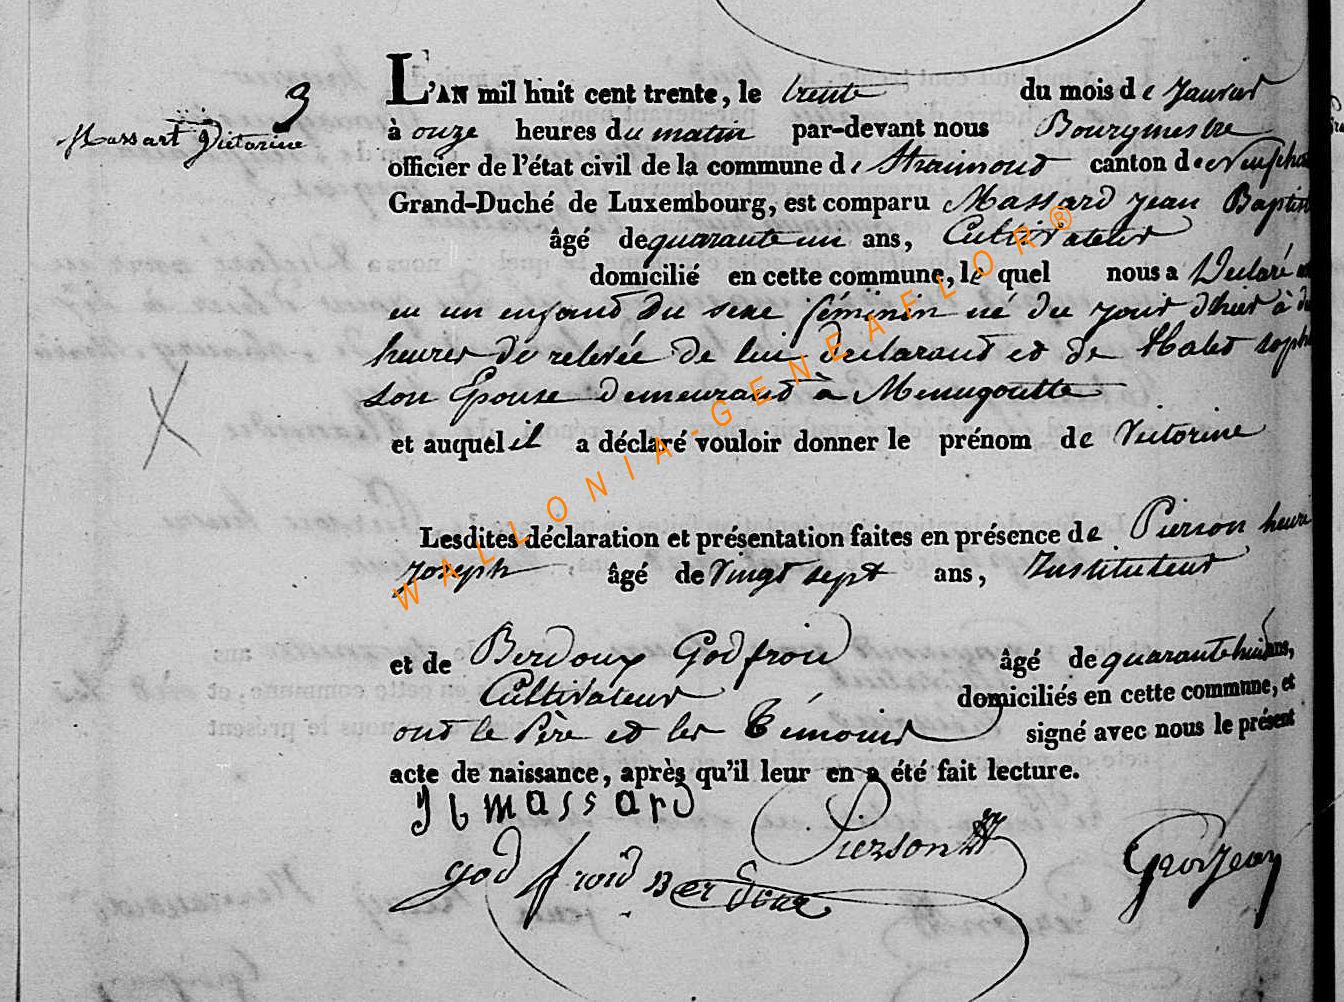 3
Massart Victorine
L'AN mil huit cent trente, le trente du mois de Janvier
à onze heures du matin par-devant nous Bourgmestre
officier de l'état civil de la commune de Straimont canton de Neufcha
Grand-Duché de Luxembourg, est comparu Massard Jean Baptist
âgé de quarante un ans, Cultivateur
domicilié en cette commune, le quel nous a Déclaré
en un enfant du sexe féminin né du jour d'hier à
heures de relevée de lui déclarant et de Halet Soph
son Epouse demeurant à Menugoutte
et auquel il a déclaré vouloir donner le prénom de Victorine
Lesdites déclaration et présentation faites en présence de Pierson henri
Joseph âgé de Vingt sept ans, Instituteur
et de Berdoux Godfroid âgé de quarante huit ans,
Cultivateur domiciliés en cette commune, et
ont le Père et les Témoins signé avec nous le présent
acte de naissance, après qu'il leur en a été fait lecture.
J b massard
Pierson
god froid Berdoux
Grosjean
WALLONIA-GENEAFLOR®